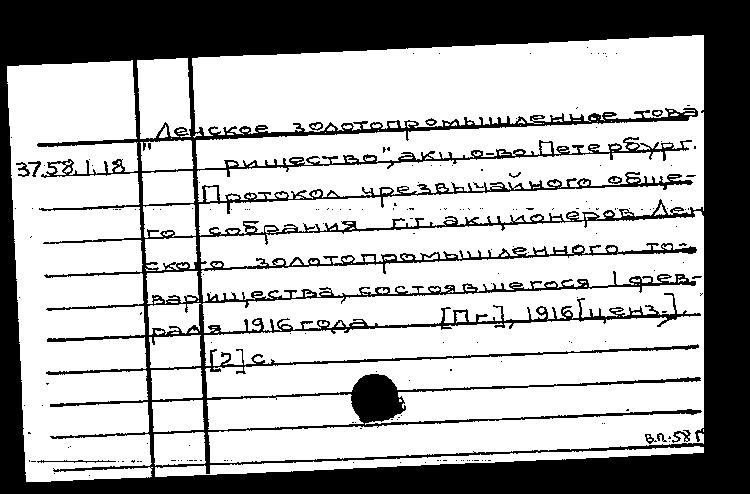 "Ленское золотопромышленное това-
37.58.1.18 рищество", акц. о-во. Петербург.
Протокол чрезвычайного обще-
го собрания г.г. акционеров Лен
ского золотопромышленного то-
варищества, состоявшегося 1 фев-
раля 1916 года. [Пг.], 1916 [ценз.].
[2] с.